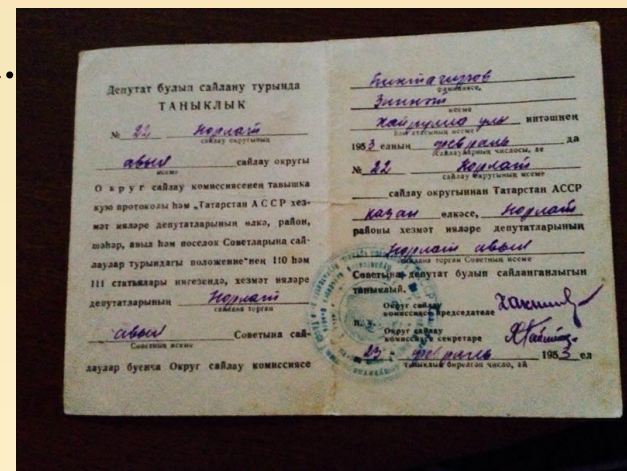 Депутат булып сайлану турында
ТАНЫКЛЫК
№ 22 Норлат
сайлау округының
авыл сайлау округы
исеме
Округ сайлау комиссиясенең тавышка
кую протоколы һәм „Татарстан АССР хез-
мәт ияләре депутатларының өлкә, район,
шәһәр, авыл һәм поселок Советларына сай-
лаулар турындагы положение“нең 110 һәм
111 статьялары нигезендә, хезмәт ияләре
депутатларының Норлат
сайлана торган
авыл Советына сай-
Советның исеме
лаулар буенча Округ сайлау комиссиясе
фамилиясе,
Зиннәт
исеме
Хайрулла улы иптәшнең
һәм атасының исеме
1953 елның февраль да
сайлауларның числосы, ае
№ 22 Норлат
сайлау округының исеме
сайлау округыннан Татарстан АССР
Казан өлкәсе, Норлат
районы хезмәт ияләре депутатларының
Норлат авыл
сайлана торган Советның исеме
Советына депутат булып сайланганлыгын
таныклый.
Округ сайлау
комиссиясе председателе
Округ сайлау
комиссиясе секретаре
23 февраль 1953 ел
таныклык бирелгән число, ай